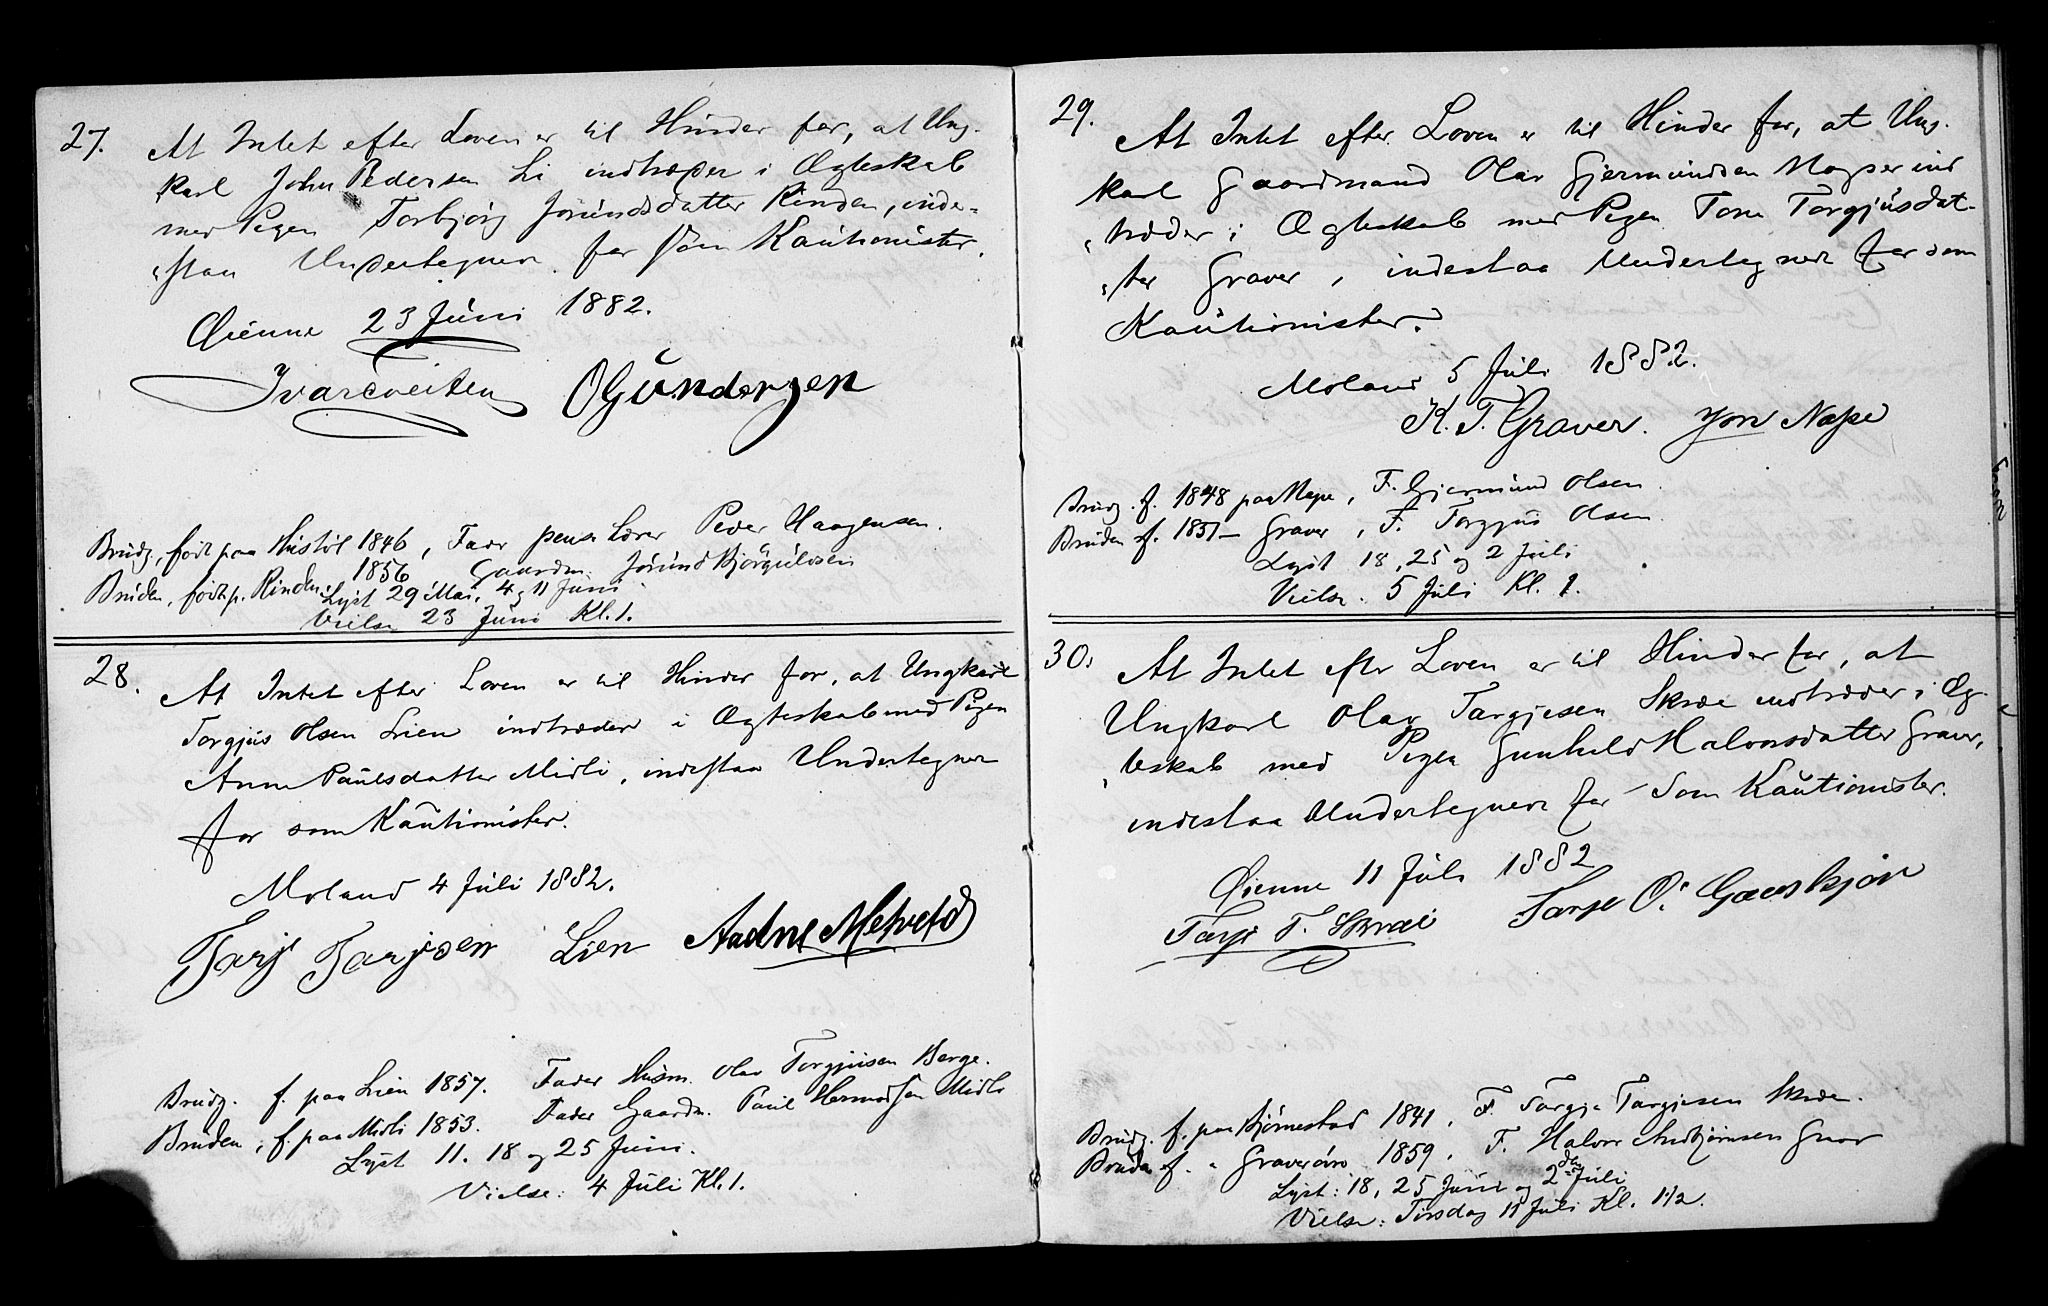 27.
At Intet efter Loven er til Hinder for, at Ung-
karl John Pedersen Li indtræder i Ægteskab
med Pigen Torbjørg Jorundsdatter Rinden, inde-
„staa Undertegnede for som Kautionister.
Øienne 23 Juni 1882.
Ivarsveiten OGundersen
Brudg. født paa Hustøl 1846, Fader pens. Lærer Peder Haagensen.
Bruden, født p. Rinden 1856 Gaardm. Jorund Bjørgulvsen
Lyst 29 Mai, 4 og 11 Juni
Vielse 23 Juni Kl. 1.
28.
At Intet efter Loven er til Hinder for, at Ungkarl
Torgjus Olsen Lien indtræder i Ægteskab med Pigen
Anne Paulsdatter Midli, indestaa Undertegnede
for som Kautionister.
Moland 4 Juli 1882.
Tarj Tarjesen Lien Aadne Metveid
Brudg. f. paa Lien 1857. Fader Husm. Olav Torgjusen Berge.
Bruden, f. paa Midli 1853. Fader Gaardm. Paul Hermodsen Midli
Lyst 11. 18 og 25 Juni.
Vielse: 4 Juli Kl. 1.
29.
At Intet efter Loven er til Hinder for, at Ung-
karl Gaardmand Olav Gjermundsen Næper ind
„træder i Ægteskab med Pigen Tone Torgjusdat-
„ter Graver, indestaa Undertegnede for som
Kautionister.
Moland 5 Juli 1882.
K. T. Graver. Jon Næpe
Brudg. f. 1848 paa Næpe, F. Gjermund Olsen.
Bruden f. 1857 – Graver, F. Torgjus Olsen.
Lyst 18, 25 og 2 Juli
Vielse. 5 Juli Kl. 1.
30.
At Intet efter Loven er til Hinder for, at
Ungkarl Olav Targjesen Skræe indtræder i Æg-
„teskab med Pigen Gunhild Halvorsdatter Graver,
indestaa Undertegnede for som Kautionister.
Øienne 11 Juli 1882
Tarje T. Skræi Tarje O. Gaaskjær
Brudg. f. paa Bjørnestad 1841, F. Targje Targjesen Skræe.
Bruden f. „ Graverøiro 1859. F. Halvor Andbjørnsen Graver
Lyst: 18, 25 Juni og 2den Juli
Vielse: Tirsdag 11 Juli Kl. 1 1/2.